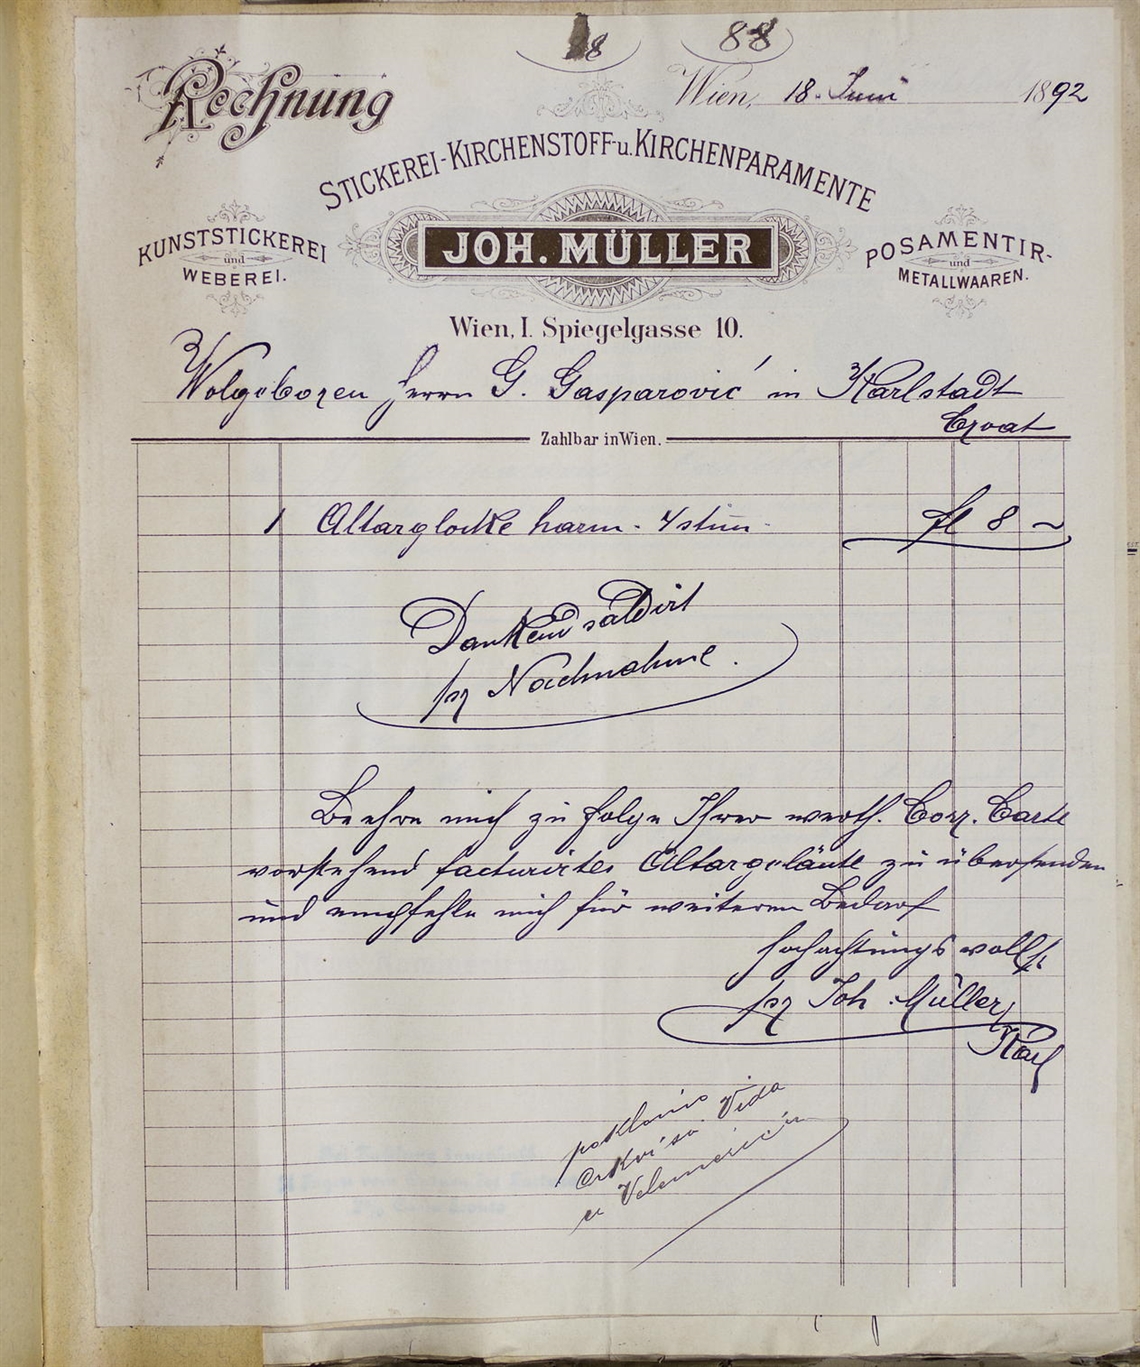 88
Rechnung
Wien, 18. Juni 1892
STICKEREI-KIRCHENSTOFF- u. KIRCHENPARAMENTE
KUNSTSTICKEREI
und
WEBEREI.
JOH. MÜLLER
POSAMENTIR-
und
METALLWAAREN.
Wien, I. Spiegelgasse 10.
Wolgeboren Herrn G. Gasparović in Karlstadt
Croat
Zahlbar in Wien.
1 Altarglocke harm. 4 stim. fl 8 ~
Dankend saldirt
pr Nachnahme.
Beehre mich zu folge Ihrer werth. Corr. Carte
vorstehend facturirtes Altargeläute zu übersenden
und empfehle mich für weiteren Bedarf
Hochachtungsvollst
pr Joh. Müller
Karl
poklonio
crkvi sv. Vida
u